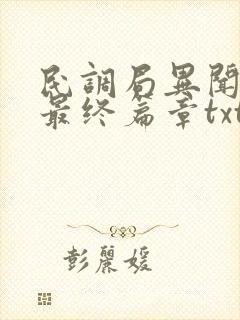 民調局異聞
最终篇章txt
彭麗媛